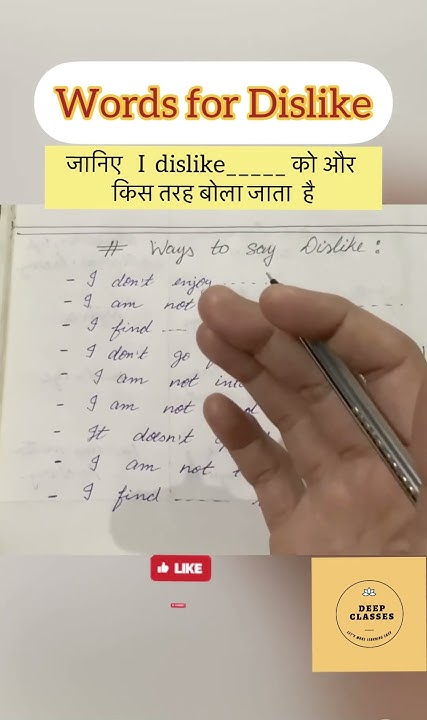 Words for Dislike
जानिए I dislike_____ को और
किस तरह बोला जाता है
# Ways to say Dislike :
- I don't enjoy
- I am not
- I find
- I don't go
- I am not
- I am not
- It doesn't
- I am not
- I find
LIKE
DEEP
CLASSES
LET'S MAKE LEARNING EASY